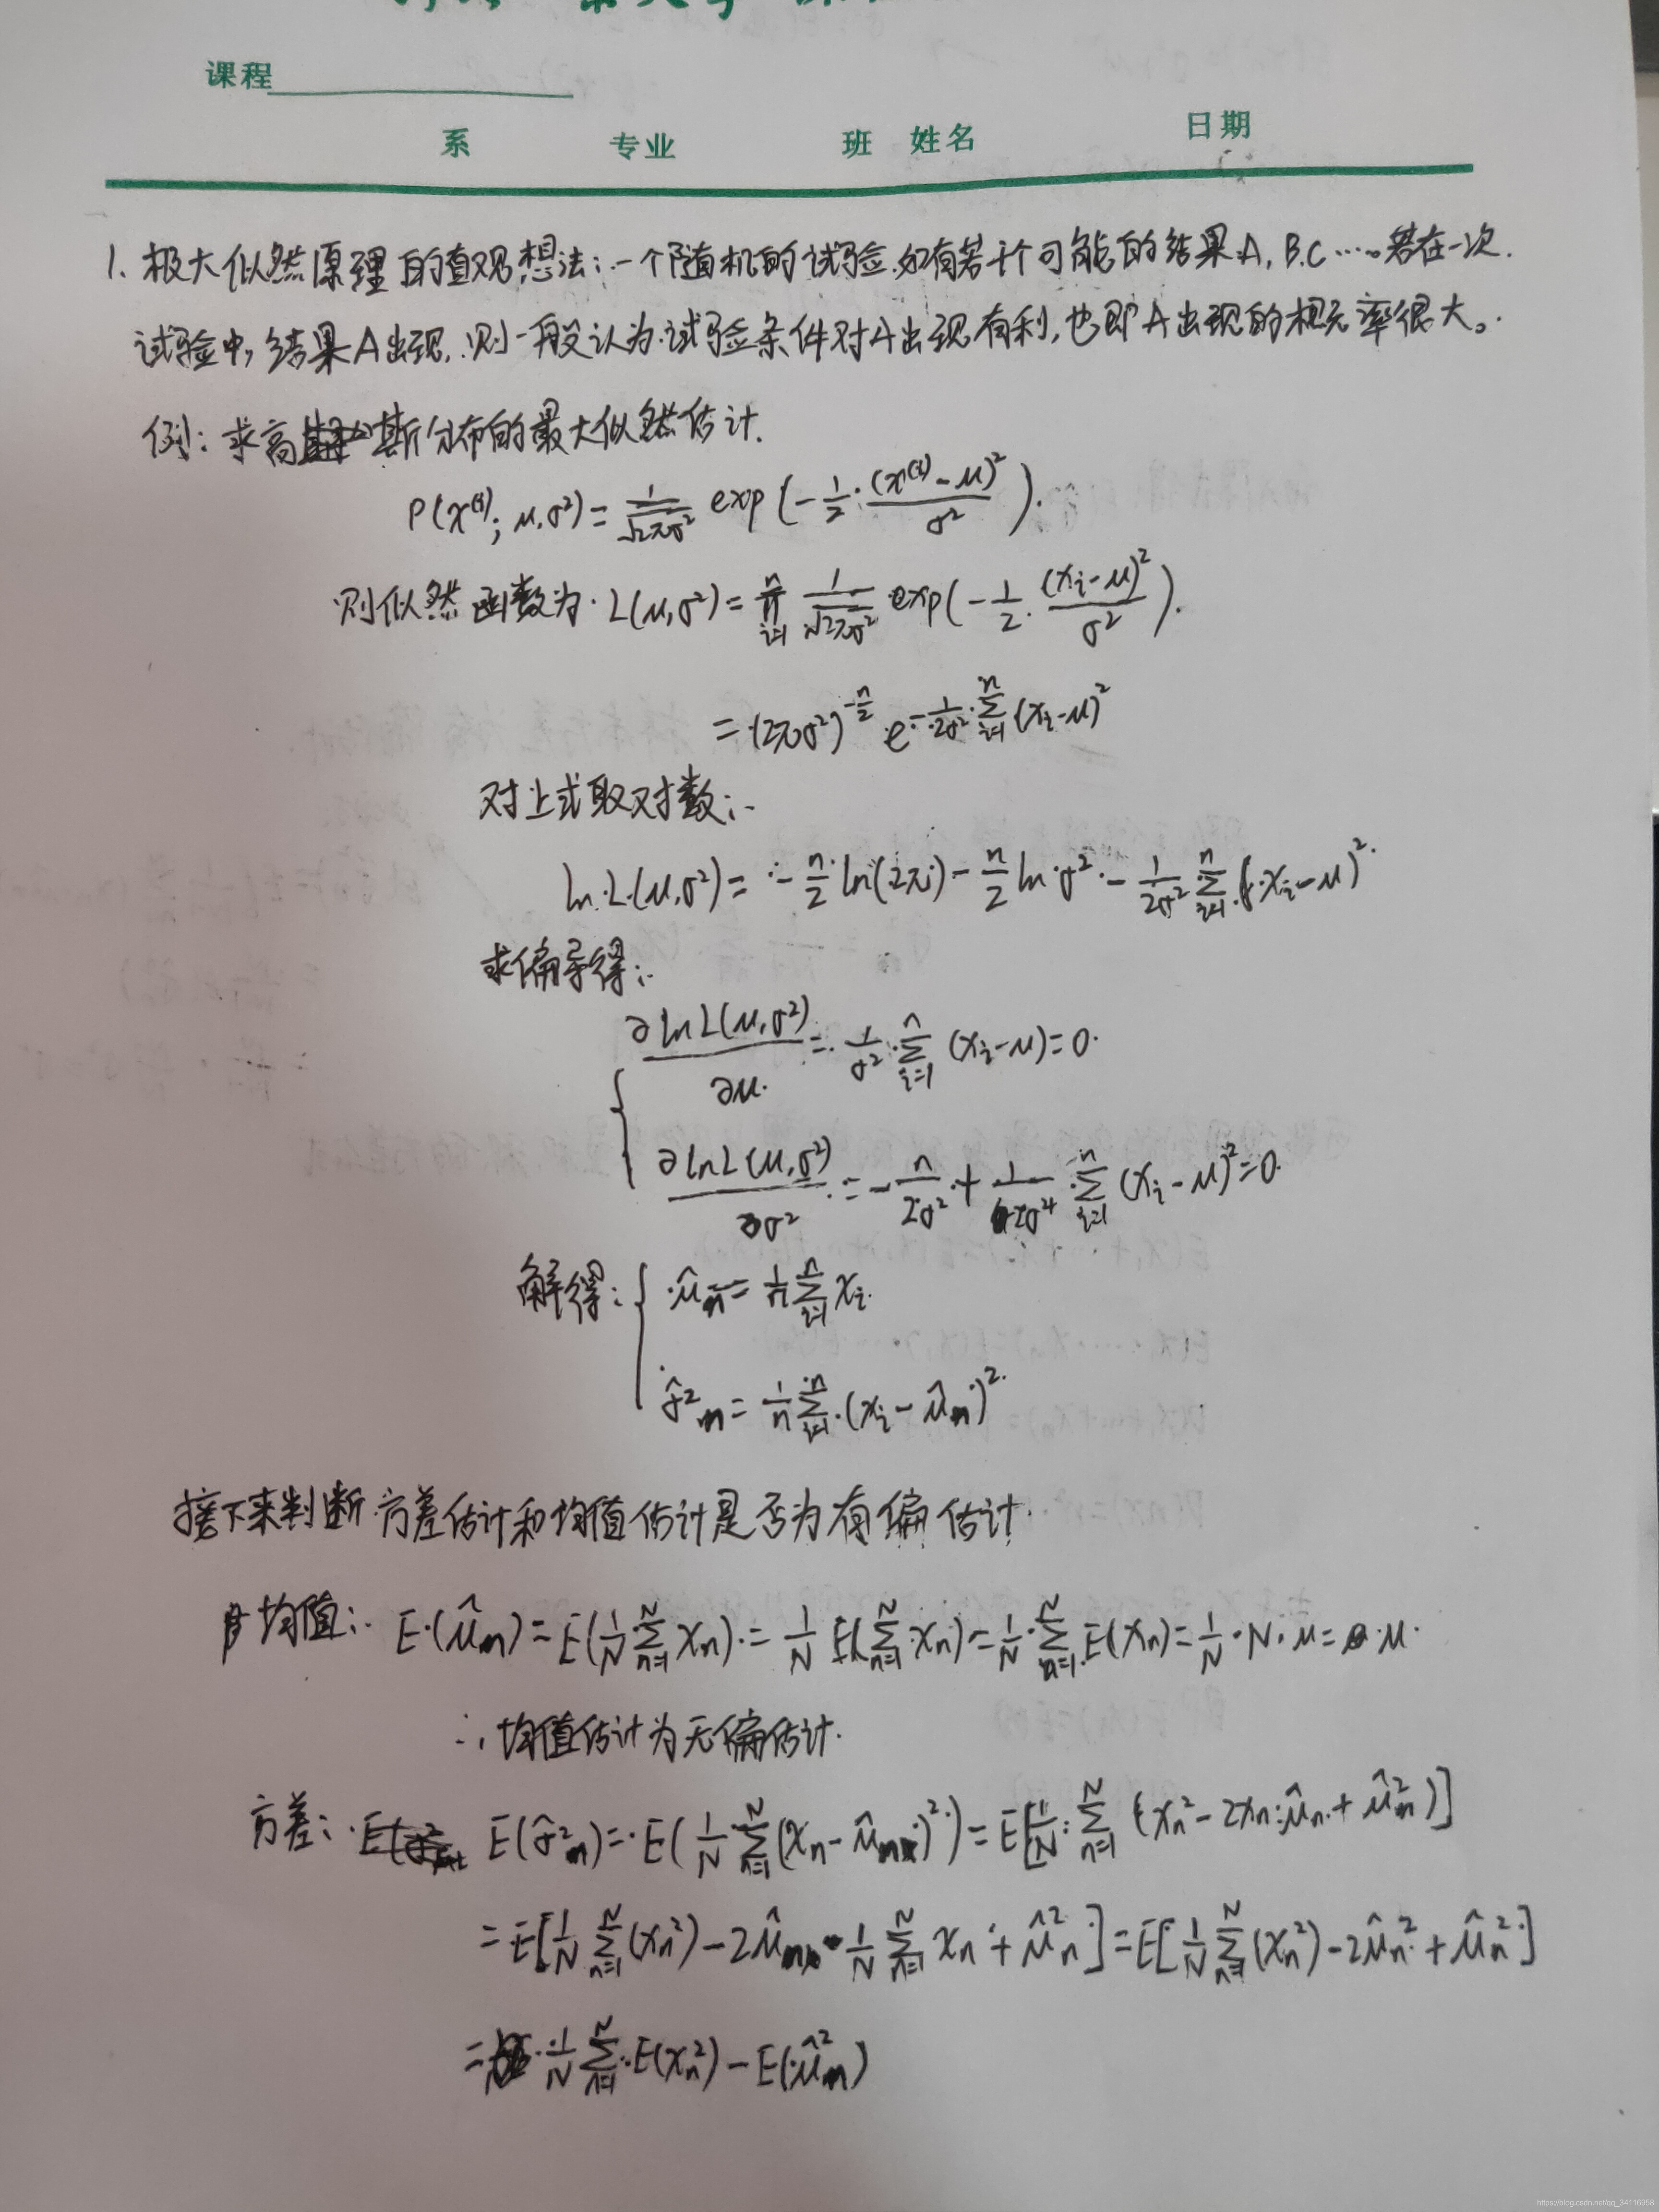 课程
系 专业 班 姓名 日期
1. 极大似然原理的直观想法:一个随机的试验,如有若干个可能的结果A,B,C……。若在一次
试验中,结果A出现,则一般认为试验条件对A出现有利,也即A出现的概率很大。
例:求高斯分布的最大似然估计.
P(x⁽ⁱ⁾; μ,σ²) = 1/√(2πσ²) exp(-1/2·(x⁽ⁱ⁾-μ)²/σ²).
则似然函数为 L(μ,σ²) = ∏_{i=1}^{n} 1/√(2πσ²) exp(-1/2·(x_i-μ)²/σ²).
= (2πσ²)^{-n/2} e^{-1/(2σ²) Σ_{i=1}^{n} (x_i-μ)²}
对上式取对数:
ln L(μ,σ²) = -n/2 ln(2π) - n/2 ln σ² - 1/(2σ²) Σ_{i=1}^{n} (x_i-μ)²
求偏导得:
{ ∂lnL(μ,σ²)/∂μ = 1/σ² Σ_{i=1}^{n} (x_i-μ) = 0
∂lnL(μ,σ²)/∂σ² = -n/(2σ²) + 1/(2σ⁴) Σ_{i=1}^{n} (x_i-μ)² = 0
解得: { μ̂_m = 1/n Σ_{i=1}^{n} x_i
σ̂²_m = 1/n Σ_{i=1}^{n} (x_i-μ̂_m)²
接下来判断方差估计和均值估计是否为有偏估计
均值: E(μ̂_m) = E(1/N Σ_{n=1}^{N} x_n) = 1/N E(Σ_{n=1}^{N} x_n) = 1/N Σ_{n=1}^{N} E(x_n) = 1/N·N·μ = μ
∴均值估计为无偏估计.
方差: E(σ̂²_m) = E(1/N Σ_{n=1}^{N} (x_n-μ̂_m)²) = E[1/N Σ_{n=1}^{N} (x_n²-2x_n μ̂_n+μ̂_m²)]
= E[1/N Σ_{n=1}^{N} (x_n²) - 2μ̂_m · 1/N Σ_{n=1}^{N} x_n + μ̂_n²] = E[1/N Σ_{n=1}^{N} (x_n²) - 2μ̂_n² + μ̂_n²]
= 1/N Σ_{n=1}^{N} E(x_n²) - E(μ̂_m²)
https://blog.csdn.net/qq_34116958